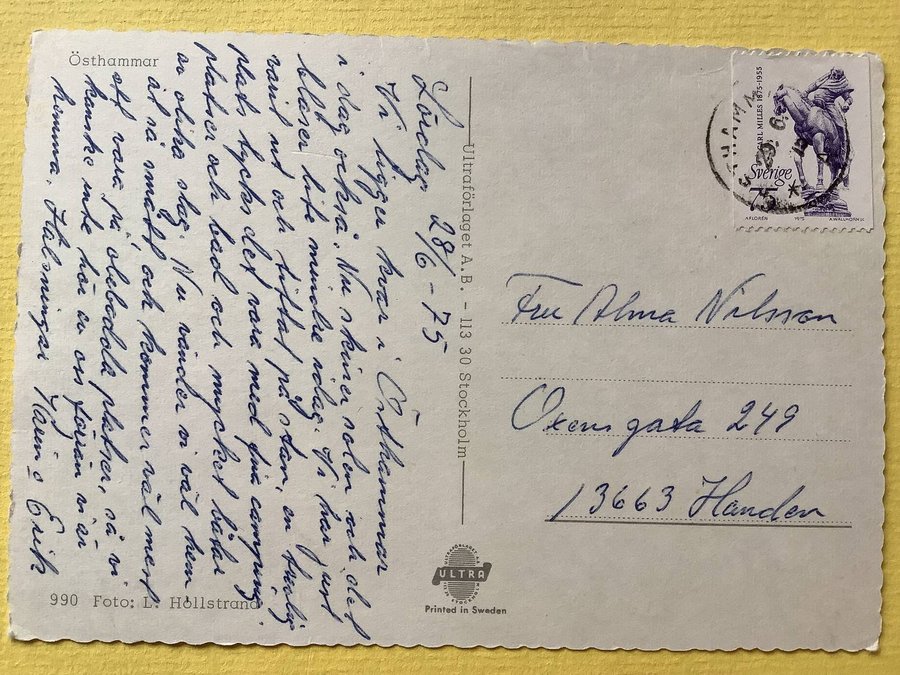 Östhammar
Lördag 28/6-75
Vi ligger kvar i Östhammar
i dag också. Nu skiner solen och det
blåser lite mindre idag. Vi har just
varit ut och tittat på stan, en trevlig
plats tycks det vara med fina camping
platser och bad och mycket båtar
av olika slag. Nu vänder vi väl hem
åt så smått och kommer väl mest
att vara på obebodda platser, så vi
kanske inte hör av oss förrän vi är
hemma. Hälsningar Karin o Erik
990 Foto: L. Höllstrand
Ultraförlaget A.B. - 113 30 Stockholm
ULTRA
Printed in Sweden
CARL MILLES 1875-1955
Sverige
75
A FLORÉN 1975 A WALLHORN SC
Fru Alma Nilsson
Oxensgata 249
13663 Handen